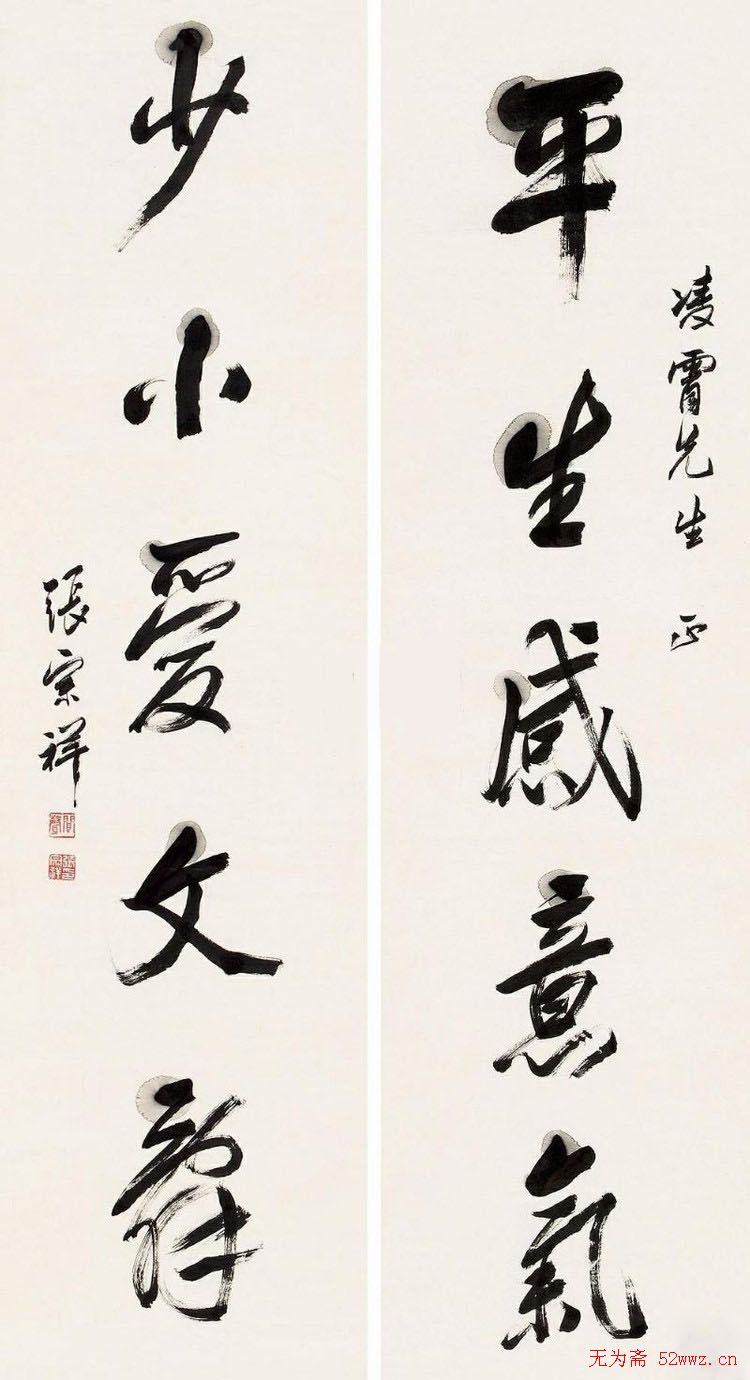 凌霄先生 正
平生感意氣
少小愛文辭
張宗祥
无为斋 52wwz.cn